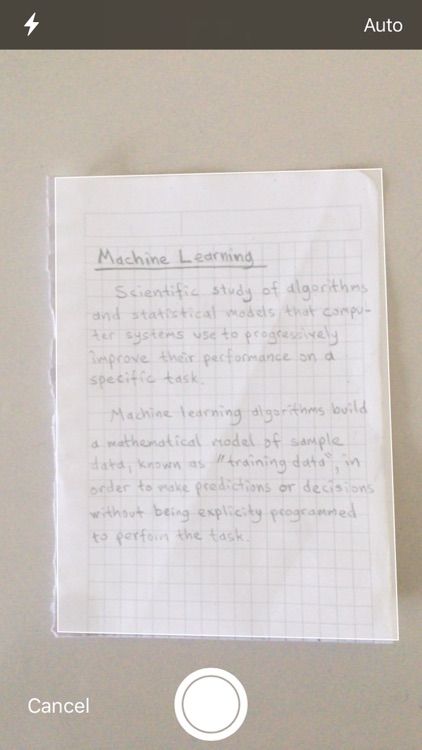 Auto
Machine Learning
Scientific study of algorithms
and statistical models, that compu-
ter systems use to progressively
improve their performance on a
specific task.
Machine learning algorithms build
a mathematical model of sample
data, known as "training data", in
order to make predictions or decisions
without being explicity programmed
to perfoin the task.
Cancel